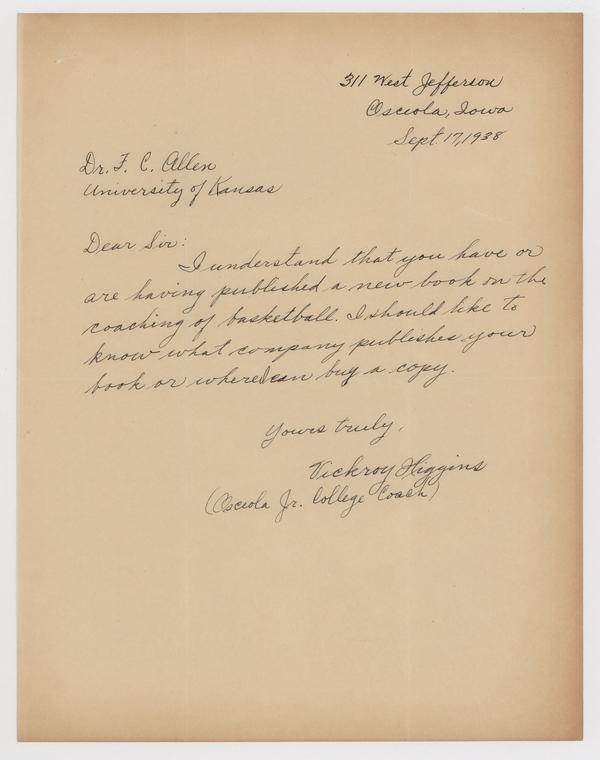 311 West Jefferson
Osceola, Iowa
Sept. 17, 1938
Dr. F. C. Allen
University of Kansas
Dear Sir:
I understand that you have or
are having published a new book on the
coaching of basketball. I should like to
know what company publishes your
book or where I can buy a copy.
Yours truly,
Vickroy Higgins
(Osceola Jr. College Coach)